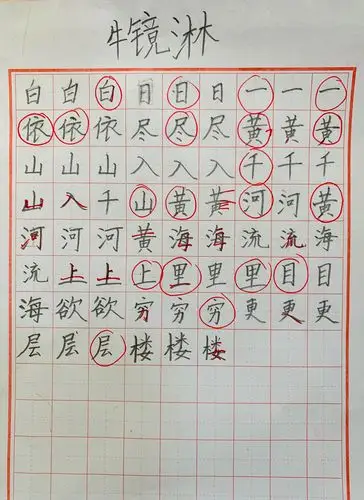 牛镜淋
白白白日日日一一一
依依依尽尽尽黄黄黄
山山山入入入千千千
山入千山黄黄河河黄
河河河黄海海流流海
流上上上里里里目目
海欲欲穷穷穷更更更
层层层楼楼楼